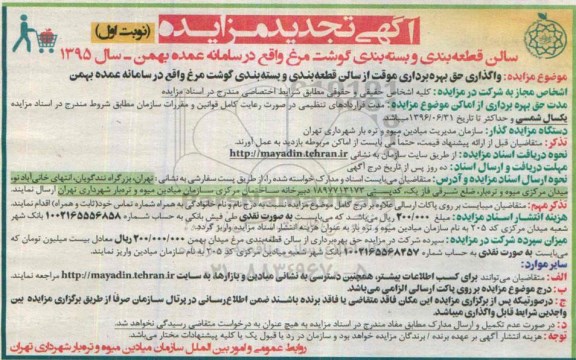 آگهی تجدید مزایده
(نوبت اول)
سالن قطعه‌بندی و بسته‌بندی گوشت مرغ واقع در سامانه عمده بهمن - سال ۱۳۹۵
موضوع مزایده: واگذاری حق بهره‌برداری موقت از سالن قطعه‌بندی و بسته‌بندی گوشت مرغ واقع در سامانه عمده بهمن
اشخاص مجاز به شرکت در مزایده: کلیه اشخاص حقیقی و حقوقی مطابق شرایط اختصاصی مندرج در اسناد مزایده
مدت حق بهره برداری از اماکن موضوع مزایده: مدت قراردادهای تنظیمی در صورت رعایت کامل قوانین و مقررات سازمان مطابق شروط مندرج در اسناد مزایده
یکسال شمسی و حداکثر تا تاریخ ۱۳۹۶/۰۶/۳۱ میباشد
دستگاه مزایده گذار: سازمان مدیریت میادین میوه و تره بار شهرداری تهران
تذکر: متقاضیان قبل از ارائه پیشنهاد قیمت، حتماً می بایست از اماکن مربوطه بازدید به عمل آورند.
نحوه دریافت اسناد مزایده: از طریق سایت سازمان به نشانی http://mayadin.tehran.ir
مهلت دریافت و ارسال اسناد: ده روز پس از تاریخ درج آگهی
نحوه ارسال اسناد مزایده و آدرس: متقاضیان می‌بایست اسناد و مدارک خواسته شده را از طریق پست سفارشی به نشانی: تهران، بزرگراه تندگویان، انتهای خانی آباد نو،
میدان مرکزی میوه و تره‌بار، ضلع شمالی فاز یک، کدپستی ۱۸۹۷۷۱۳۱۷۳ دبیرخانه ساختمان مرکزی سازمان میادین میوه و تره‌بار شهرداری تهران ارسال نمایند.
تذکر مهم: متقاضیان میبایست بر روی پاکات ارسالی علاوه بر درج کامل موضوع مزایده، نسبت به درج نام و نام خانوادگی به همراه شماره تماس خود (ثابت و همراه) اقدام نمایند.
هزینه انتشار اسناد مزایده: مبلغ ۲۰۰/۰۰۰ ریال می‌باشد که می‌بایست به صورت نقدی طی فیش بانکی به حساب شماره ۱۰۰۲۱۶۵۵۵۶۸۵۸ بانک شهر
شعبه میدان مرکزی کد ۲۰۵ به نام سازمان میادین میوه و تره بار به عنوان هزینه انتشار اسناد مزایده واریز گردد.
میزان سپرده شرکت در مزایده: سپرده شرکت در مزایده حق بهره‌برداری از سالن قطعه‌بندی مرغ میدان بهمن ۲۰۰/۰۰۰/۰۰۰ ریال معادل بیست میلیون تومان که
می‌بایست به صورت نقدی به حساب شماره ۱۰۰۲۱۶۵۵۶۸۴۵۷ بانک شهر شعبه میدان مرکزی کد ۲۰۵ به نام سازمان میادین واریز نمایند.
سایر موارد:
الف: متقاضیان می‌توانند برای کسب اطلاعات بیشتر، همچنین دسترسی به نشانی میادین و بازارها، به سایت http://mayadin.tehran.ir مراجعه نمایند.
ب: درج موضوع مزایده بر روی پاکت ارسالی الزامی می‌باشد.
ج: درصورتیکه پس از برگزاری مزایده این مکان فاقد متقاضی یا فاقد برنده باشند ضمن اطلاع‌رسانی در پرتال سازمان صرفاً از طریق برگزاری مزایده بین
واجدین شرایط قابل واگذاری میباشد
د: در صورت عدم تکمیل و ارسال مدارک مطابق مفاد مندرج در اسناد مزایده به هیچ عنوان به درخواست متقاضی رسیدگی نخواهد شد.
توجه: هزینه انتشار آگهی بر عهده برنده / برندگان مزایده خواهد بود و سازمان در رد یا قبول یک یا کلیه پیشنهادات مختار می‌باشد.
روابط عمومی و امور بین الملل سازمان میادین میوه و تره‌بار شهرداری تهران